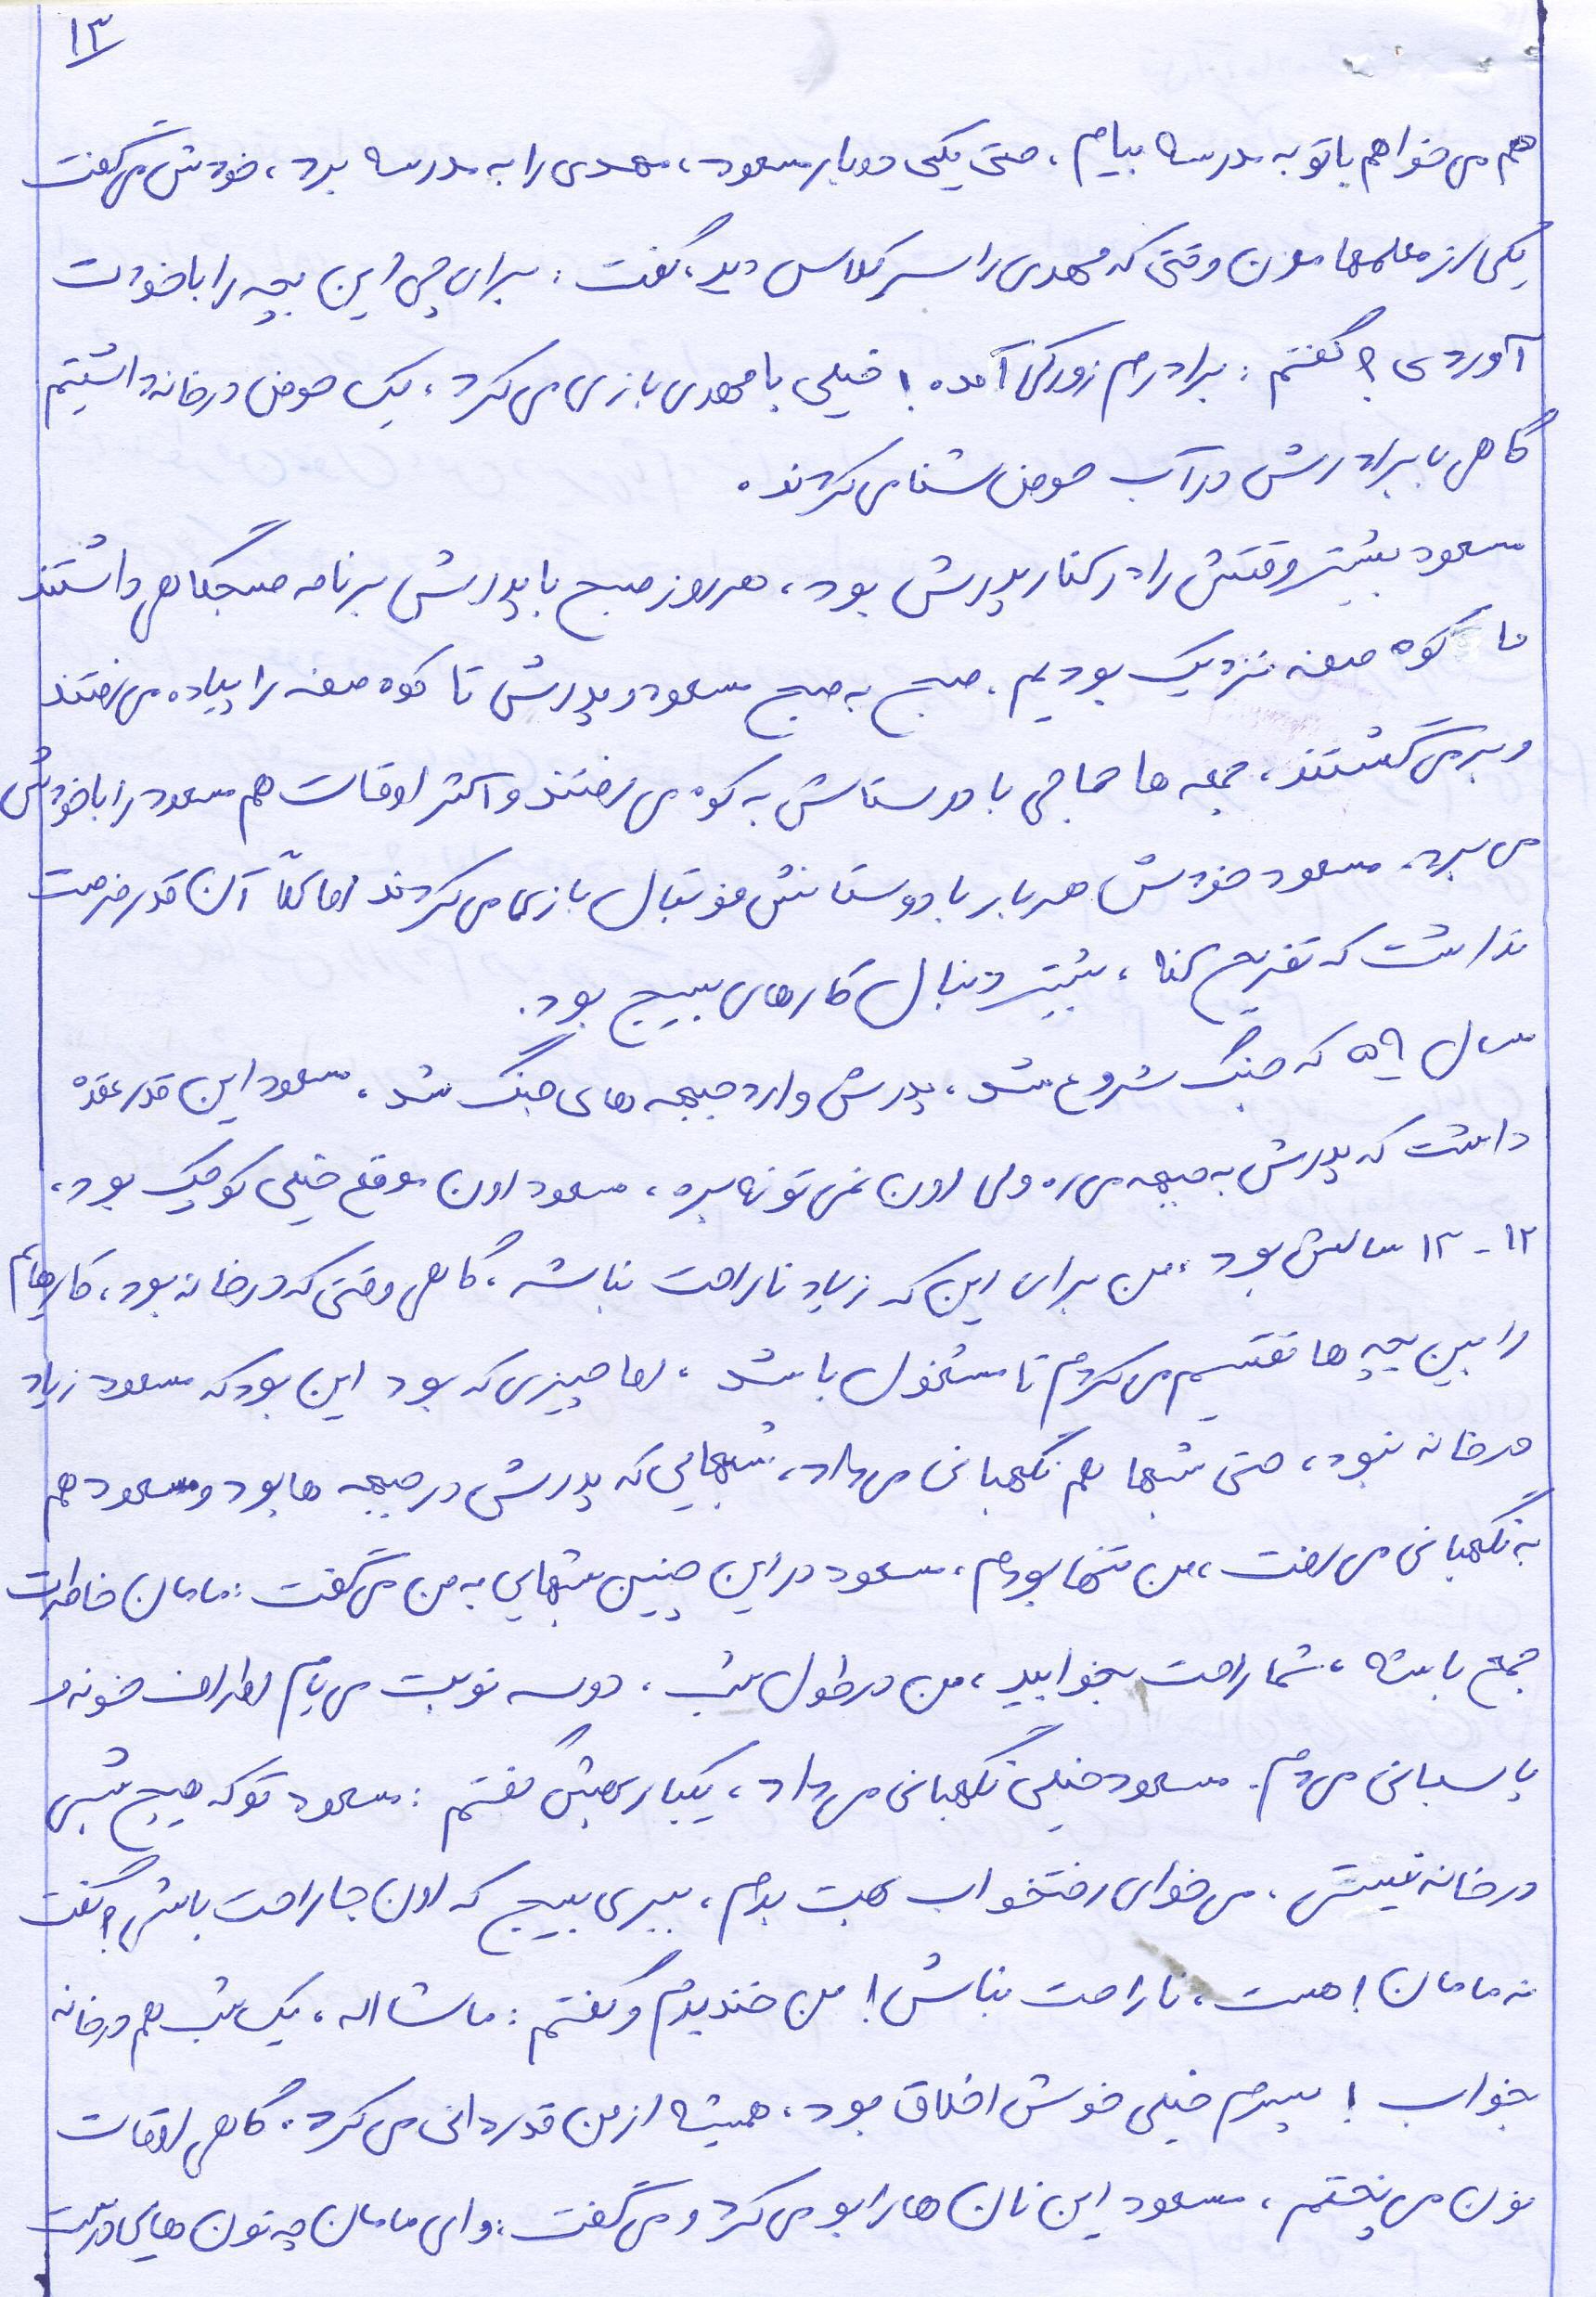 ۱۳
هم می خواهم با تو به مدرسه بیام، حتی یکی دوبار مسعود، مهدی را به مدرسه برد، خودش می گفت
یکی از معلمهامون وقتی که مهدی را سر کلاس دید، گفت: برای چی این بچه را با خودت
آوردی؟ گفتم: برادرم زورکی آمده! خیلی با مهدی بازی می کرد، یک حوض در خانه داشتیم
گاهی با برادرش در آب حوض شنا می کردند.
مسعود بیشتر وقتش را در کنار پدرش بود، هر روز صبح با پدرش برنامه صبحگاهی داشتند
ما کوه صفه نزدیک بودیم. صبح به صبح مسعود و پدرش تا کوه صفه را پیاده می رفتند
و برمی گشتند، جمعه ها حاجی با دوستاش به کوه می رفتند و اکثر اوقات هم مسعود را با خودش
می برد. مسعود خودش هر بار با دوستانش فوتبال بازی می کردند اما کلاً آن قدر فرصت
نداشت که تفریح کنه، بیشتر دنبال کارهای بسیج بود.
سال ۵۹ که جنگ شروع شد، پدرش وارد جبهه های جنگ شد، مسعود این قدر عقده
داشت که پدرش به جبهه می ره ولی اون نمی تونه بره، مسعود اون موقع خیلی کوچیک بود،
۱۲ - ۱۳ سالش بود، من برای این که زیاد ناراحت نباشه، گاهی وقتی که در خانه بود، کارهام
را بین بچه ها تقسیم می کردم تا مشغول باشد، اما چیزی که بود این بود که مسعود زیاد
در خانه نبود، حتی شبها هم نگهبانی می داد، شبهایی که پدرش در جبهه ها بود و مسعود هم
به نگهبانی می رفت، من تنها بودم، مسعود در این چنین شبهایی به من می گفت: مامان خاطرت
جمع باشه، شما راحت بخوابید، من در طول شب، دو سه نوبت می یام اطراف خونه و
پاسبانی می دم. مسعود خیلی نگهبانی می داد، یکبار بهش گفتم: مسعود تو که هیچ شبی
در خانه نیستی، می خوای رختخواب بهت بدم، ببری بسیج که اون جا راحت باشی؟ گفت
نه مامان! هست، ناراحت نباش! من خندیدم و گفتم: ماشااله، یک شب هم در خانه
بخواب! پسرم خیلی خوش اخلاق بود، همیشه از من قدردانی می کرد. گاهی اوقات
نون می پختم، مسعود این نان ها را بو می کرد و می گفت: وای مامان چه نون هایی درست